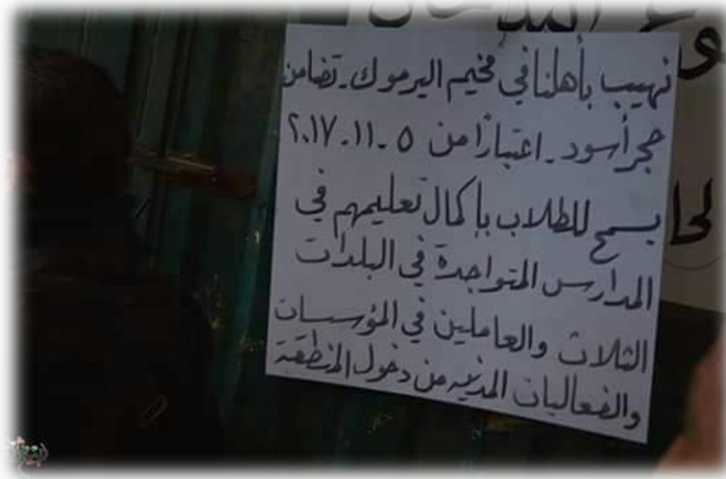 نهيب بأهلنا في مخيم اليرموك - تضامن
حجر أسود - اعتبارًا من ٥-١١-٢٠١٧
يسمح للطلاب بإكمال تعليمهم في
المدارس المتواجدة في البلدات
الثلاث والعاملين في المؤسسات
والفعاليات المدنيه من دخول المنطقة